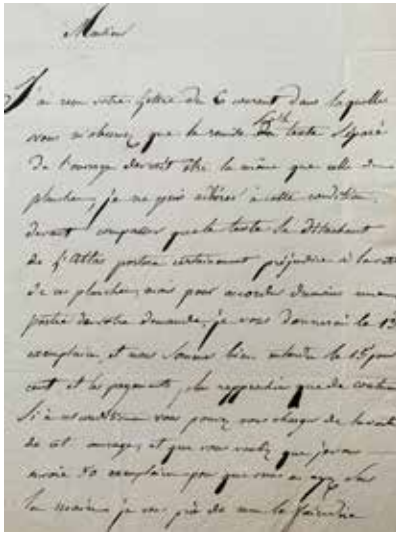 Monsieur
J'ai reçu votre lettre du 6 courant dans laquelle
vous m'observez que la remise du texte séparé
de l'ouvrage devroit être la même que celle des
planches, je ne puis adhérer à cette condition,
devant compasser que le texte se détachant
de l'Atlas portera certainement préjudice à la vente
de ces planches, mais pour accorder du moins une
partie de votre demande, je vous donnerai le 13e
exemplaire, et nous sommes bien entendu le 15 pour
cent et les payements
Si à ces conditions vous pouvez vous charger de la vente
de cet ouvrage, et que vous voulez que je vous
envoie 50 exemplaires pour que vous en ayez
je vous prie de me le faire dire